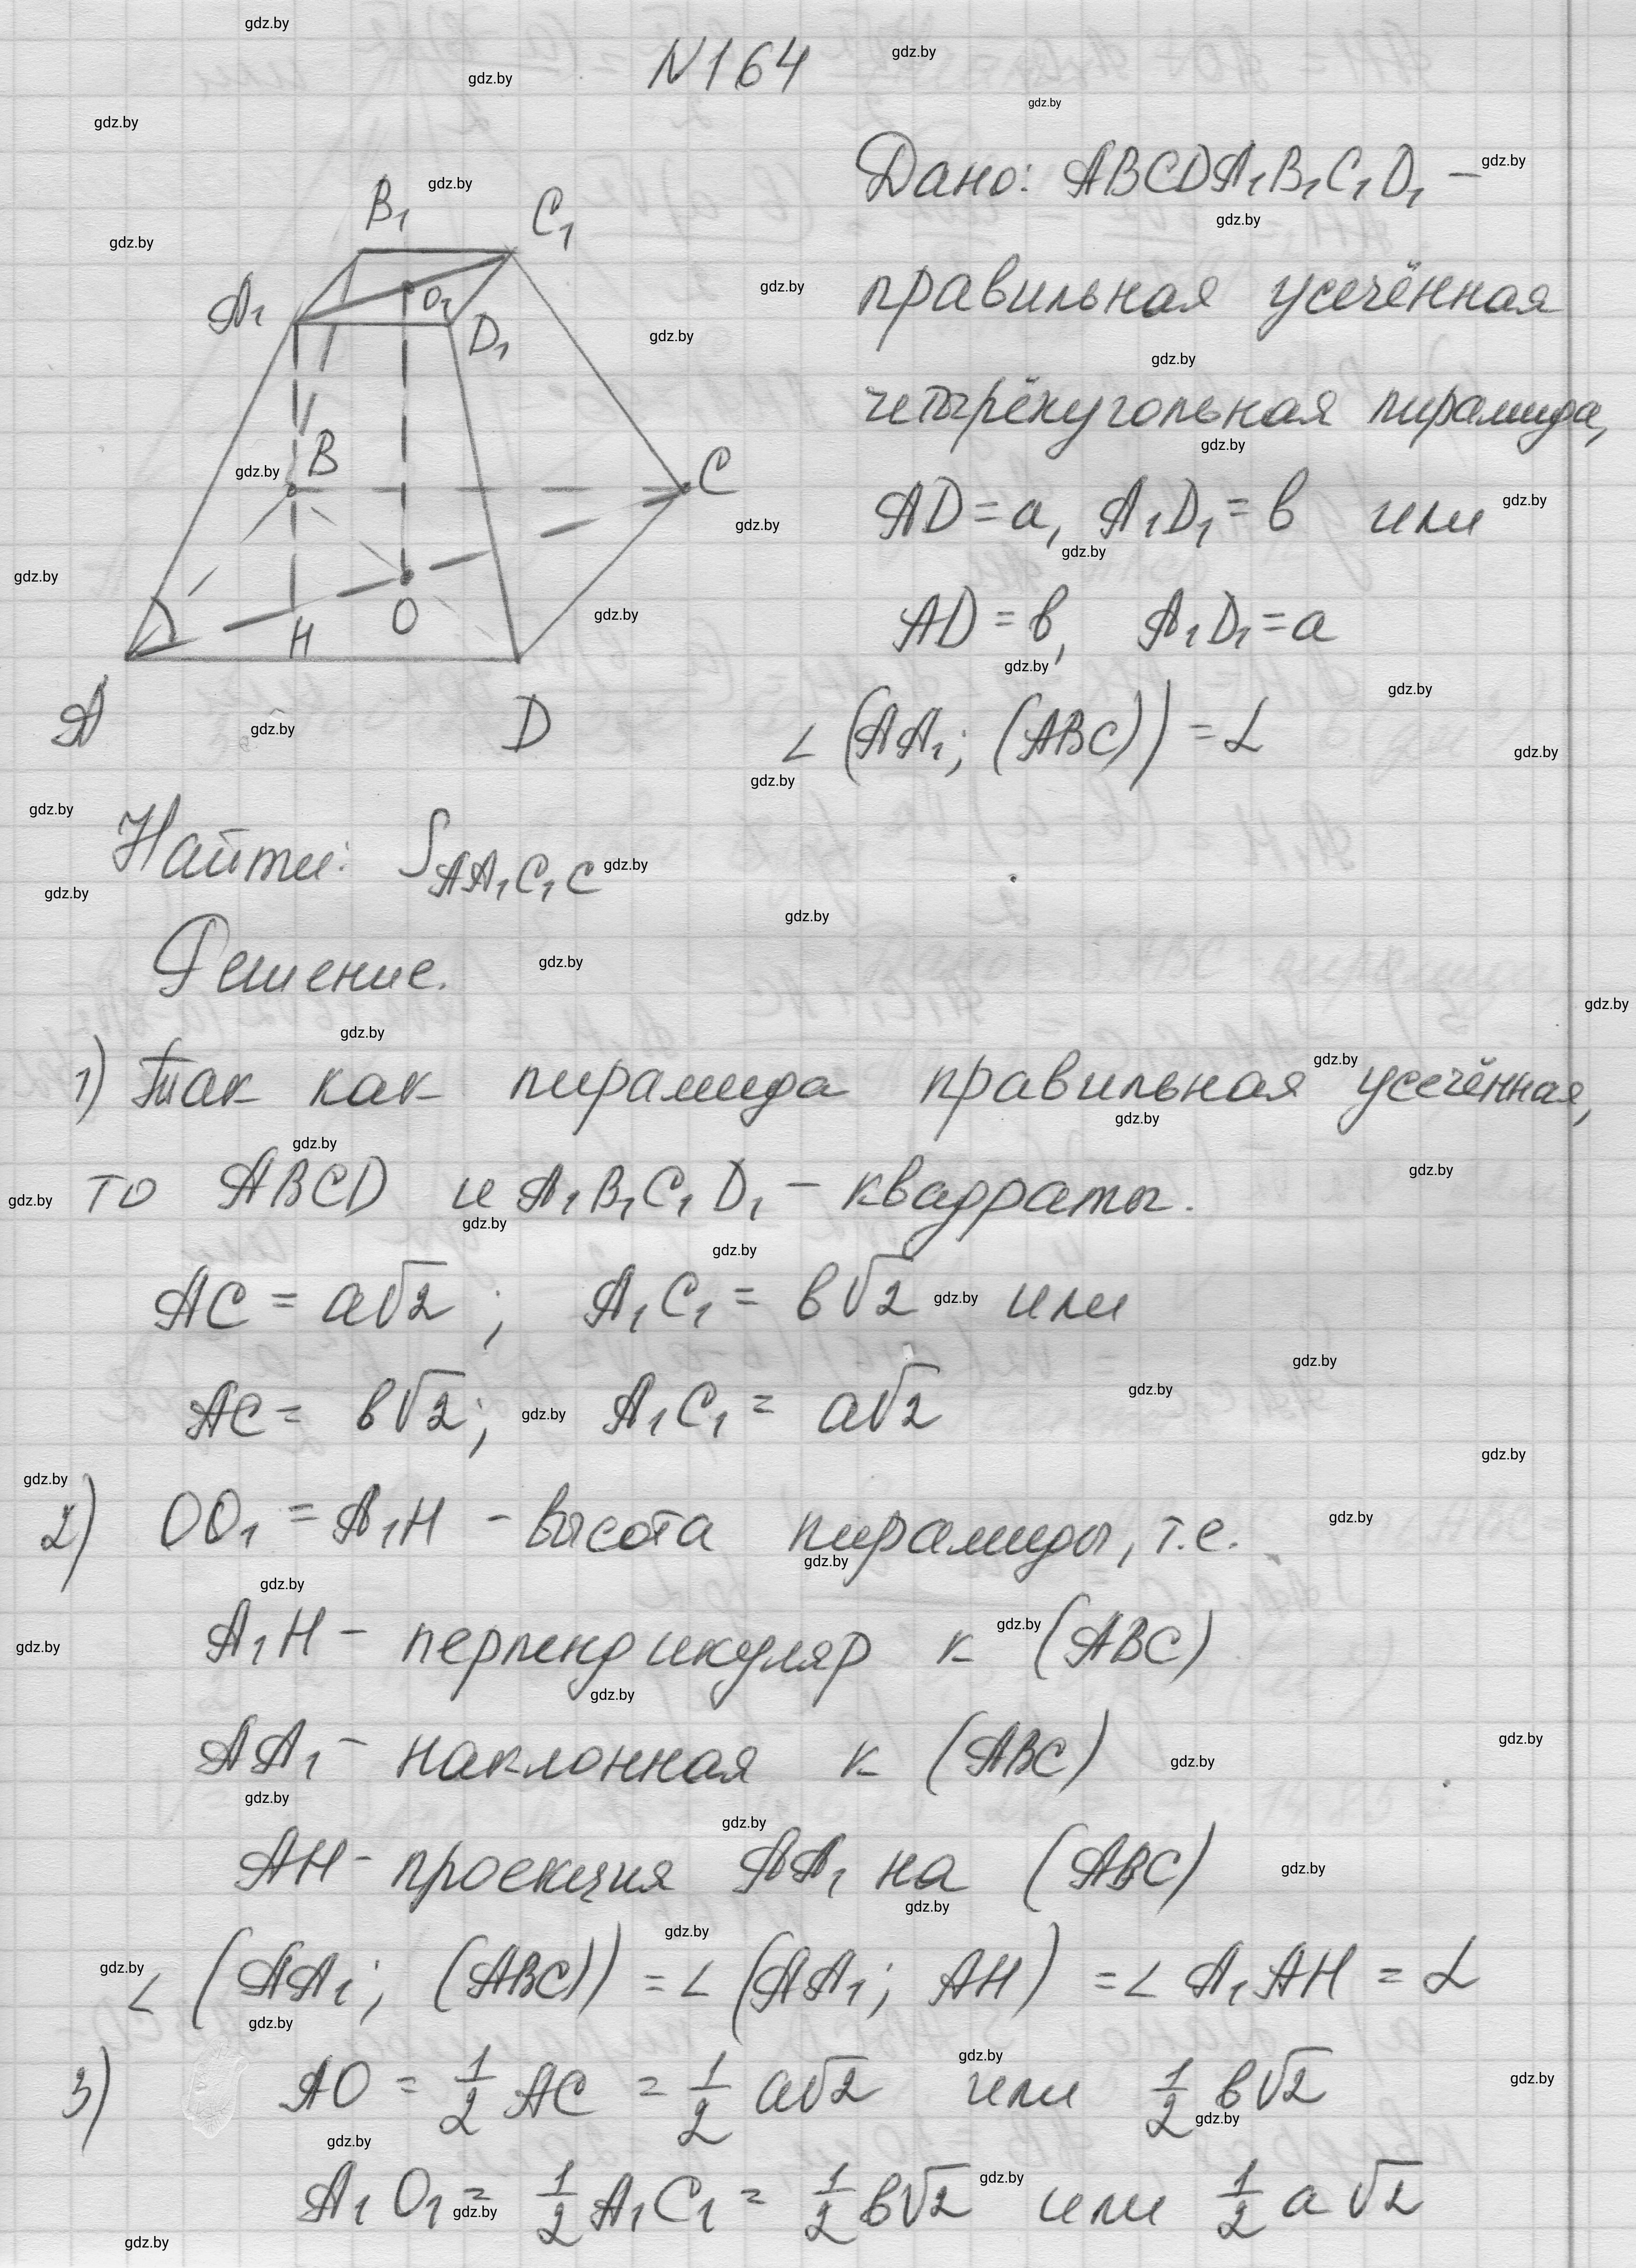 N164
Дано: ABCDA₁B₁C₁D₁ –
правильная усечённая
четырёхугольная пирамида,
AD = a, A₁D₁ = в или
AD = в, A₁D₁ = a
∠ (AA₁; (ABC)) = α
B₁
C₁
A₁
O₁
D₁
B
C
H
O
A
D
Найти: S AA₁C₁C
Решение.
1) Так как пирамида правильная усечённая,
то ABCD и A₁B₁C₁D₁ – квадраты.
AC = a√2 ; A₁C₁ = в√2 или
AC = в√2; A₁C₁ = a√2
2) OO₁ = A₁H – высота пирамиды, т.е.
A₁H – перпендикуляр к (ABC)
AA₁ – наклонная к (ABC)
AH – проекция AA₁ на (ABC)
∠ (AA₁; (ABC)) = ∠ (AA₁; AH) = ∠ A₁AH = α
3) AO = 1/2 AC = 1/2 a√2 или 1/2 в√2
A₁O₁ = 1/2 A₁C₁ = 1/2 в√2 или 1/2 a√2
gdz.by